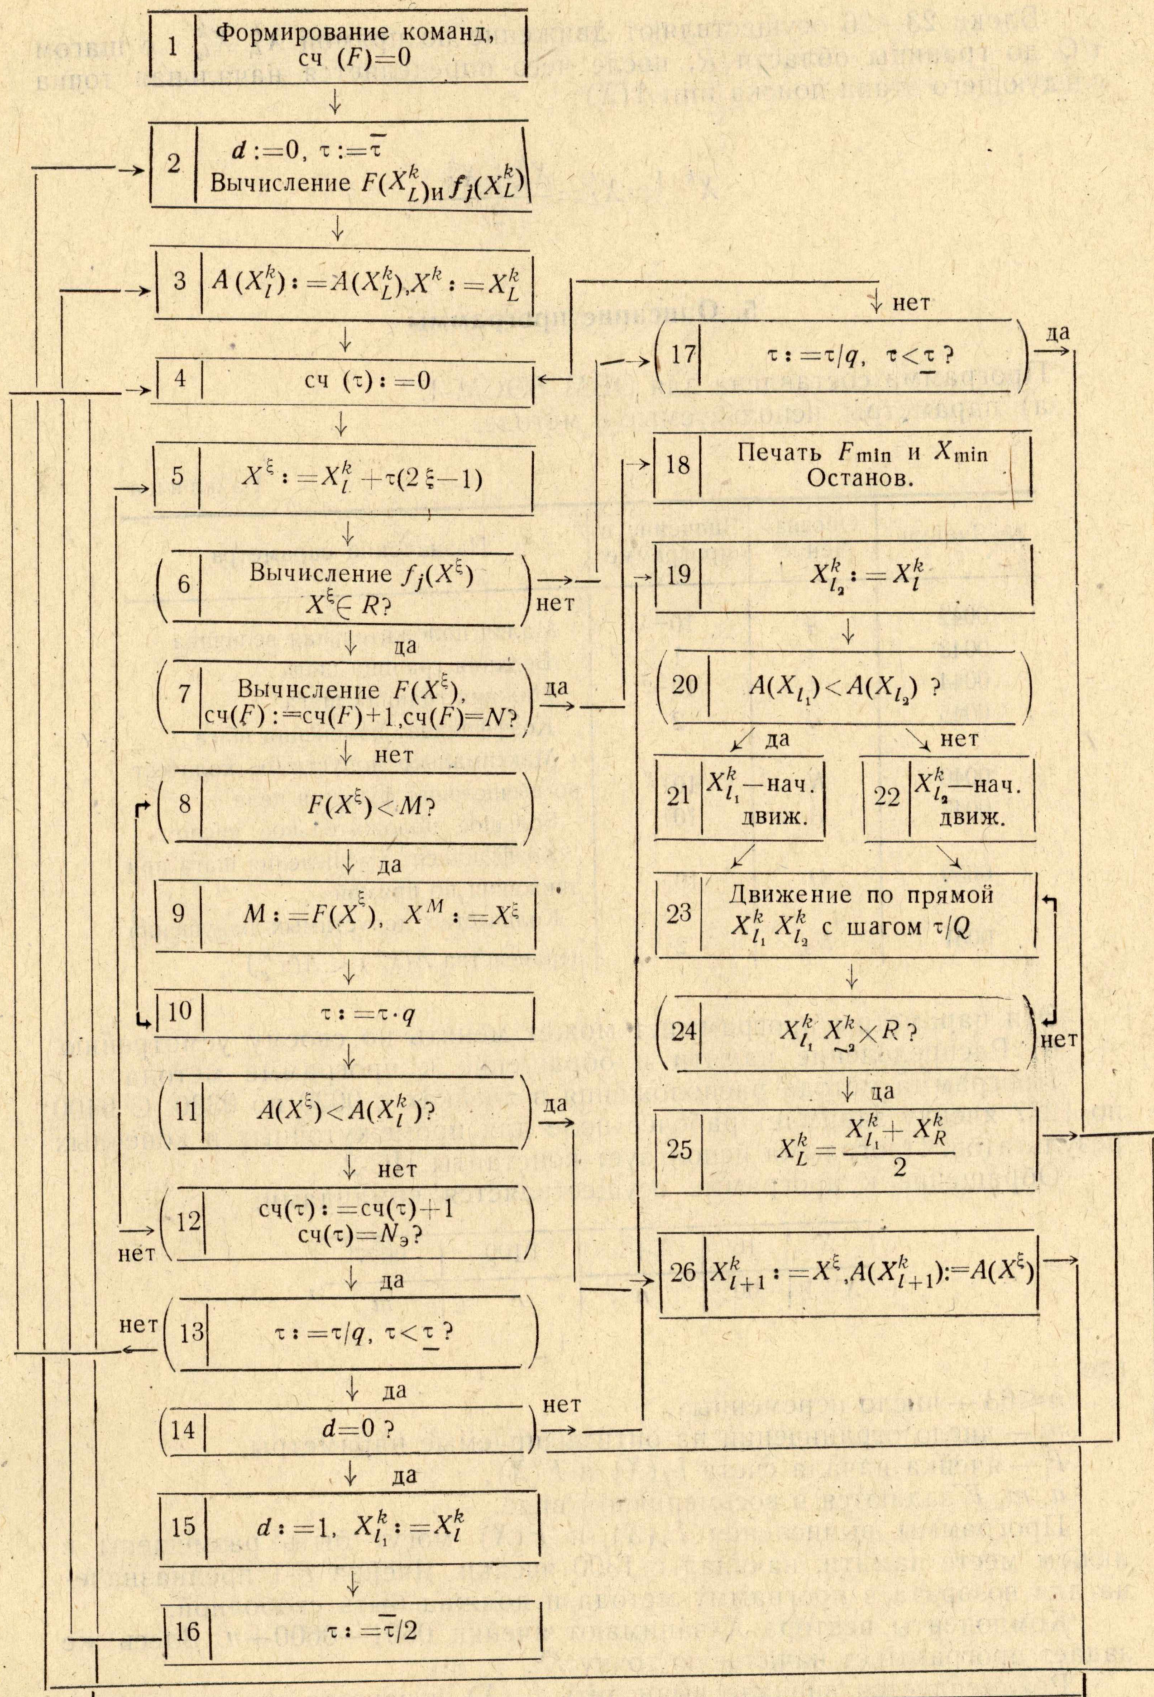 1 Формирование команд,
сч (F)=0
2 d :=0, τ :=τ̅
Вычисление F(X_L^k) и f_j(X_L^k)
3 A(X_l^k) := A(X_L^k), X^k := X_L^k
4 сч (τ) := 0
5 X^ξ := X_l^k + τ(2ξ−1)
6 Вычисление f_j(X^ξ)
X^ξ ∈ R?
нет
да
7 Вычисление F(X^ξ),
сч(F) :=сч(F)+1, сч(F)=N?
да
нет
8 F(X^ξ)<M?
да
9 M := F(X^ξ), X^M := X^ξ
10 τ := τ·q
11 A(X^ξ)<A(X_l^k)?
да
нет
12 сч(τ) := сч(τ)+1
сч(τ)=N_э?
нет
да
13 τ := τ/q, τ<τ̲ ?
нет
да
14 d=0 ?
нет
да
15 d := 1, X_{l_1}^k := X_l^k
16 τ := τ̅/2
нет
17 τ := τ/q, τ<τ̲ ?
да
18 Печать F_min и X_min
Останов.
19 X_{l_2}^k := X_l^k
20 A(X_{l_1})<A(X_{l_2}) ?
да нет
21 X_{l_1}^k—нач.
движ.
22 X_{l_2}^k—нач.
движ.
23 Движение по прямой
X_{l_1}^k X_{l_2}^k с шагом τ/Q
24 X_{l_1}^k X_2^k × R ?
нет
да
25 X_L^k = (X_{l_1}^k + X_R^k)/2
26 X_{l+1}^k := X^ξ, A(X_{l+1}^k):=A(X^ξ)